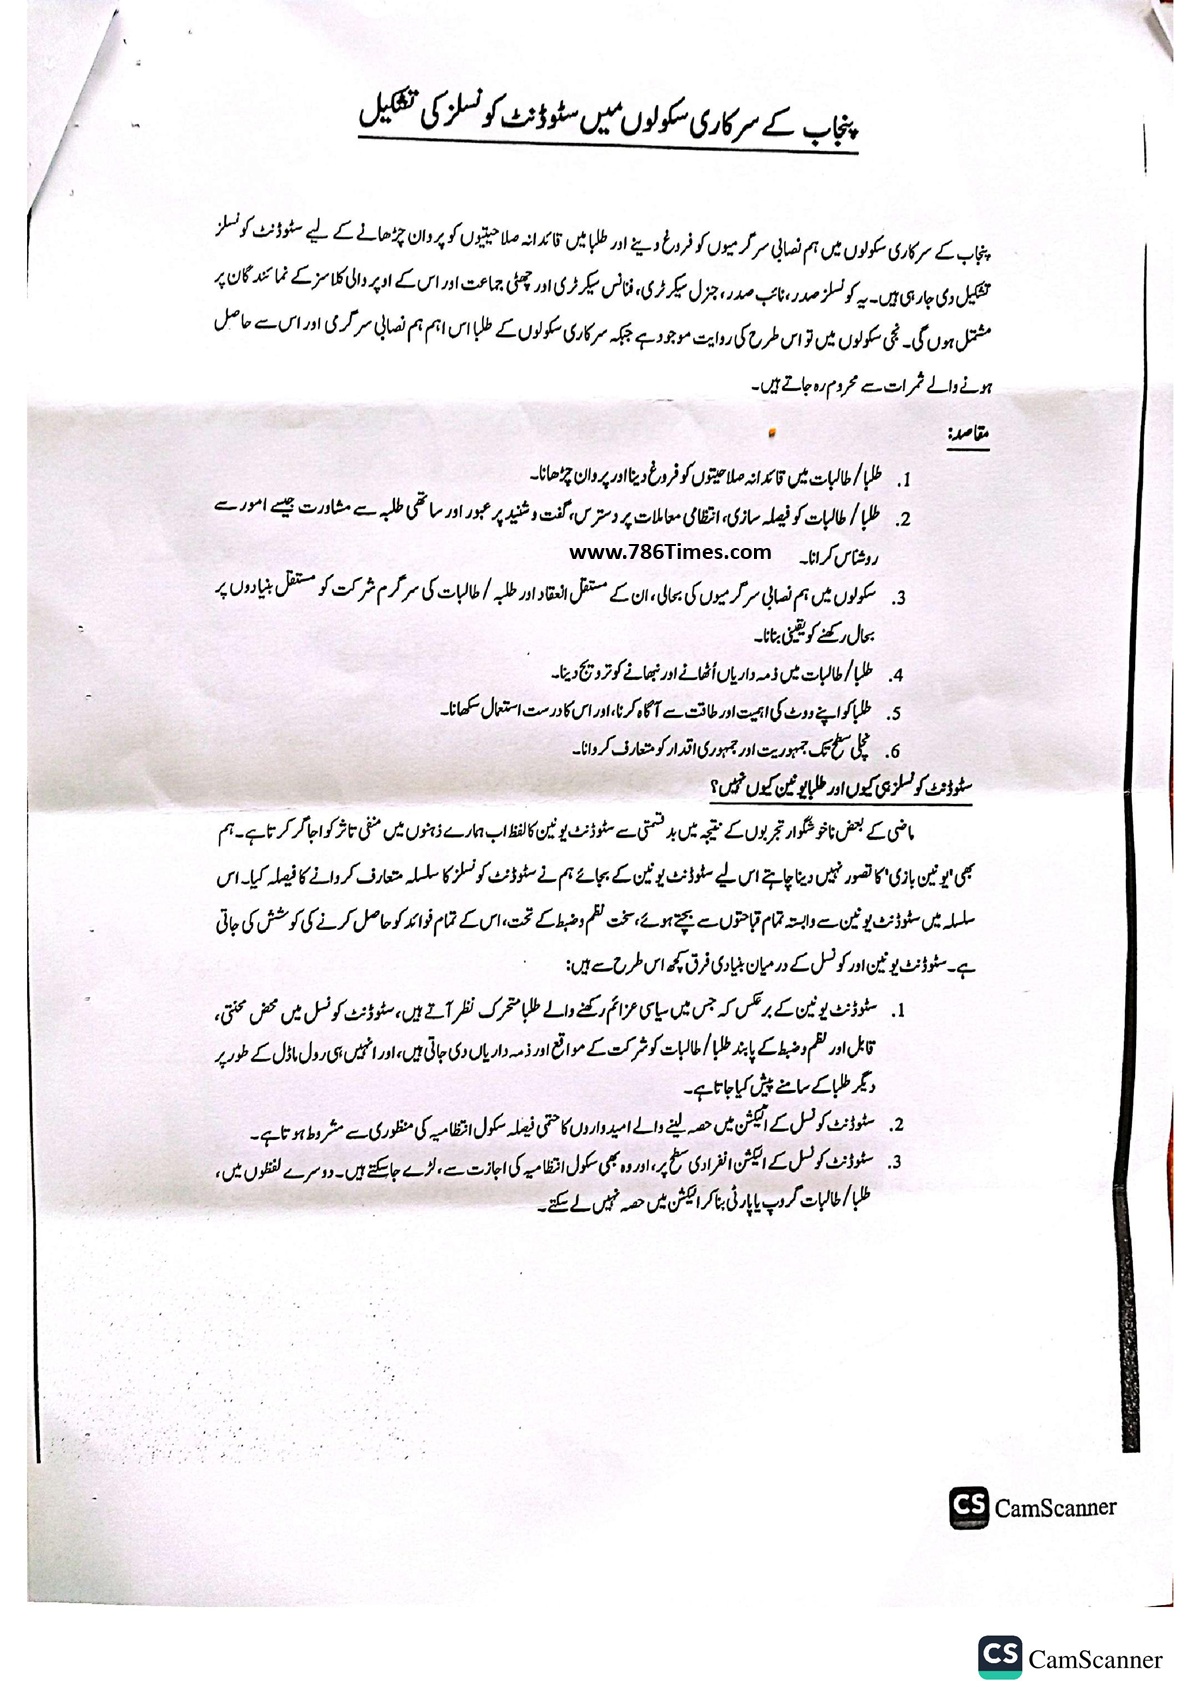 پنجاب کے سرکاری سکولوں میں سٹوڈنٹ کونسلز کی تشکیل
پنجاب کے سرکاری سکولوں میں ہم نصابی سرگرمیوں کو فروغ دینے اور طلبا میں قائدانہ صلاحیتوں کو پروان چڑھانے کے لیے سٹوڈنٹ کونسلز
تشکیل دی جا رہی ہیں۔ یہ کونسلز صدر، نائب صدر، جنرل سیکرٹری، فنانس سیکرٹری اور چھٹی جماعت اور اس کے اوپر والی کلاسز کے نمائندگان پر
مشتمل ہوں گی۔ نجی سکولوں میں تو اس طرح کی روایت موجود ہے جبکہ سرکاری سکولوں کے طلبا اس اہم ہم نصابی سرگرمی اور اس سے حاصل
ہونے والے ثمرات سے محروم رہ جاتے ہیں۔
مقاصد:
1. طلبا/طالبات میں قائدانہ صلاحیتوں کو فروغ دینا اور پروان چڑھانا۔
2. طلبا/طالبات کو فیصلہ سازی، انتظامی معاملات پر دسترس، گفت و شنید پر عبور اور ساتھی طلبہ سے مشاورت جیسے امور سے
روشناس کرانا۔ www.786Times.com
3. سکولوں میں ہم نصابی سرگرمیوں کی بحالی، ان کے مستقل انعقاد اور طلبہ/طالبات کی سرگرم شرکت کو مستقل بنیادوں پر
بحال رکھنے کو یقینی بنانا۔
4. طلبا/طالبات میں ذمہ داریاں اُٹھانے اور نبھانے کو ترویج دینا۔
5. طلبا کو اپنے ووٹ کی اہمیت اور طاقت سے آگاہ کرنا، اور اس کا درست استعمال سکھانا۔
6. نچلی سطح تک جمہوریت اور جمہوری اقدار کو متعارف کروانا۔
سٹوڈنٹ کونسلز ہی کیوں اور طلبا یونین کیوں نہیں؟
ماضی کے بعض ناخوشگوار تجربوں کے نتیجہ میں بدقسمتی سے سٹوڈنٹ یونین کا لفظ اب ہمارے ذہنوں میں منفی تاثر کو اجاگر کرتا ہے۔ ہم
بھی 'یونین بازی' کا تصور نہیں دینا چاہتے اس لیے سٹوڈنٹ یونین کے بجائے ہم نے سٹوڈنٹ کونسلز کا سلسلہ متعارف کروانے کا فیصلہ کیا۔ اس
سلسلہ میں سٹوڈنٹ یونین سے وابستہ تمام قباحتوں سے بچتے ہوئے، سخت نظم و ضبط کے تحت، اس کے تمام فوائد کو حاصل کرنے کی کوشش کی جاتی
ہے۔ سٹوڈنٹ یونین اور کونسل کے درمیان بنیادی فرق کچھ اس طرح سے ہیں:
1. سٹوڈنٹ یونین کے برعکس کہ جس میں سیاسی عزائم رکھنے والے طلبا متحرک نظر آتے ہیں، سٹوڈنٹ کونسل میں محض محنتی،
قابل اور نظم و ضبط کے پابند طلبا/طالبات کو شرکت کے مواقع اور ذمہ داریاں دی جاتی ہیں، اور انہیں ہی رول ماڈل کے طور پر
دیگر طلبا کے سامنے پیش کیا جاتا ہے۔
2. سٹوڈنٹ کونسل کے الیکشن میں حصہ لینے والے امیدواروں کا حتمی فیصلہ سکول انتظامیہ کی منظوری سے مشروط ہوتا ہے۔
3. سٹوڈنٹ کونسل کے الیکشن انفرادی سطح پر، اور وہ بھی سکول انتظامیہ کی اجازت سے، لڑے جا سکتے ہیں۔ دوسرے لفظوں میں،
طلبا/طالبات گروپ یا پارٹی بنا کر الیکشن میں حصہ نہیں لے سکتے۔
CS CamScanner
CS CamScanner